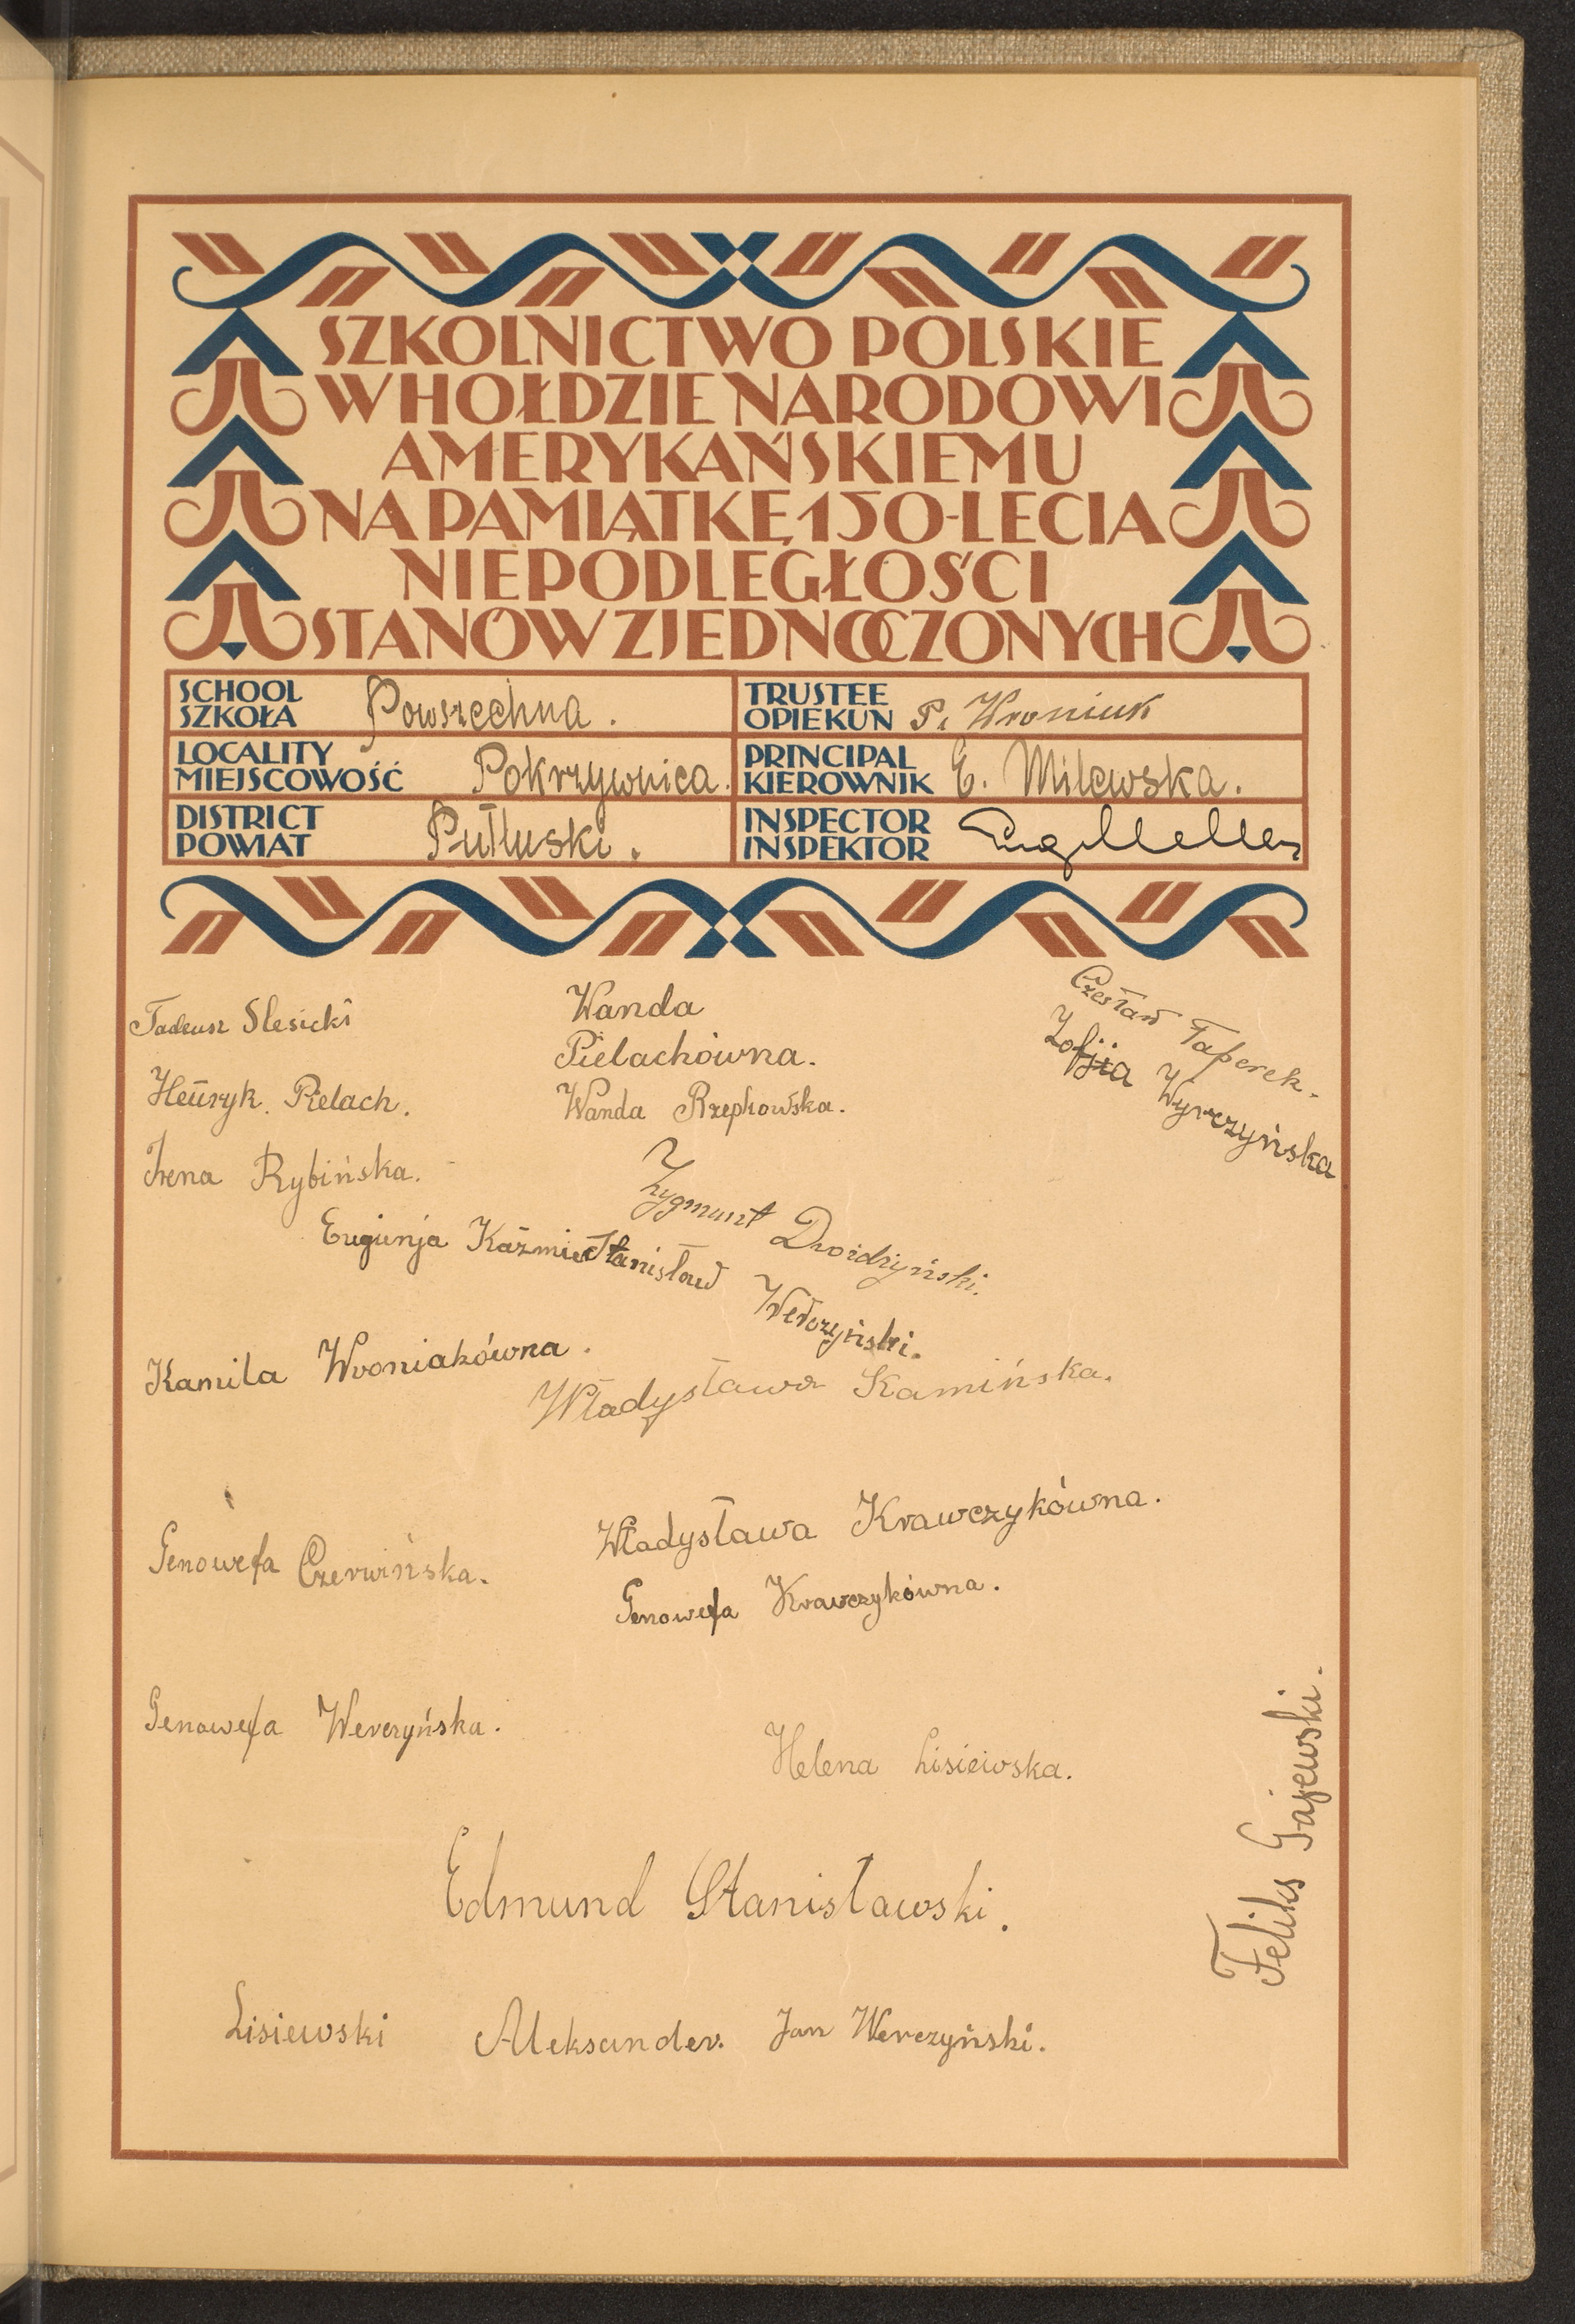 SZKOLNICTWO POLSKIE
W HOŁDZIE NARODOWI
AMERYKAŃSKIEMU
NA PAMIĄTKĘ 150-LECIA
NIEPODLEGŁOŚCI
STANÓW ZJEDNOCZONYCH
SCHOOL
SZKOŁA Powszechna.
TRUSTEE
OPIEKUN P. Wroniuk
LOCALITY
MIEJSCOWOŚĆ Pokrzywnica.
PRINCIPAL
KIEROWNIK E. Milewska.
DISTRICT
POWIAT Pułtuski.
INSPECTOR
INSPEKTOR
Tadeusz Slesicki
Wanda
Pielachówna.
Czesław Taperek.
Zofja Wyrczyńska
Henryk. Pielach.
Wanda Rzepkowska.
Irena Rybińska.
Zygmunt Droidzyński.
Eugienja Kaźmier
Stanisław
Kamila Wroniakówna.
Władysława Kamińska.
Genowefa Czerwińska.
Władysława Krawczykówna.
Genowefa Krawczykówna.
Genowefa Werczyńska.
Helena Lisiewska.
Feliks Gajewski.
Edmund Stanisławski.
Lisiewski Aleksander. Jan Werczyński.